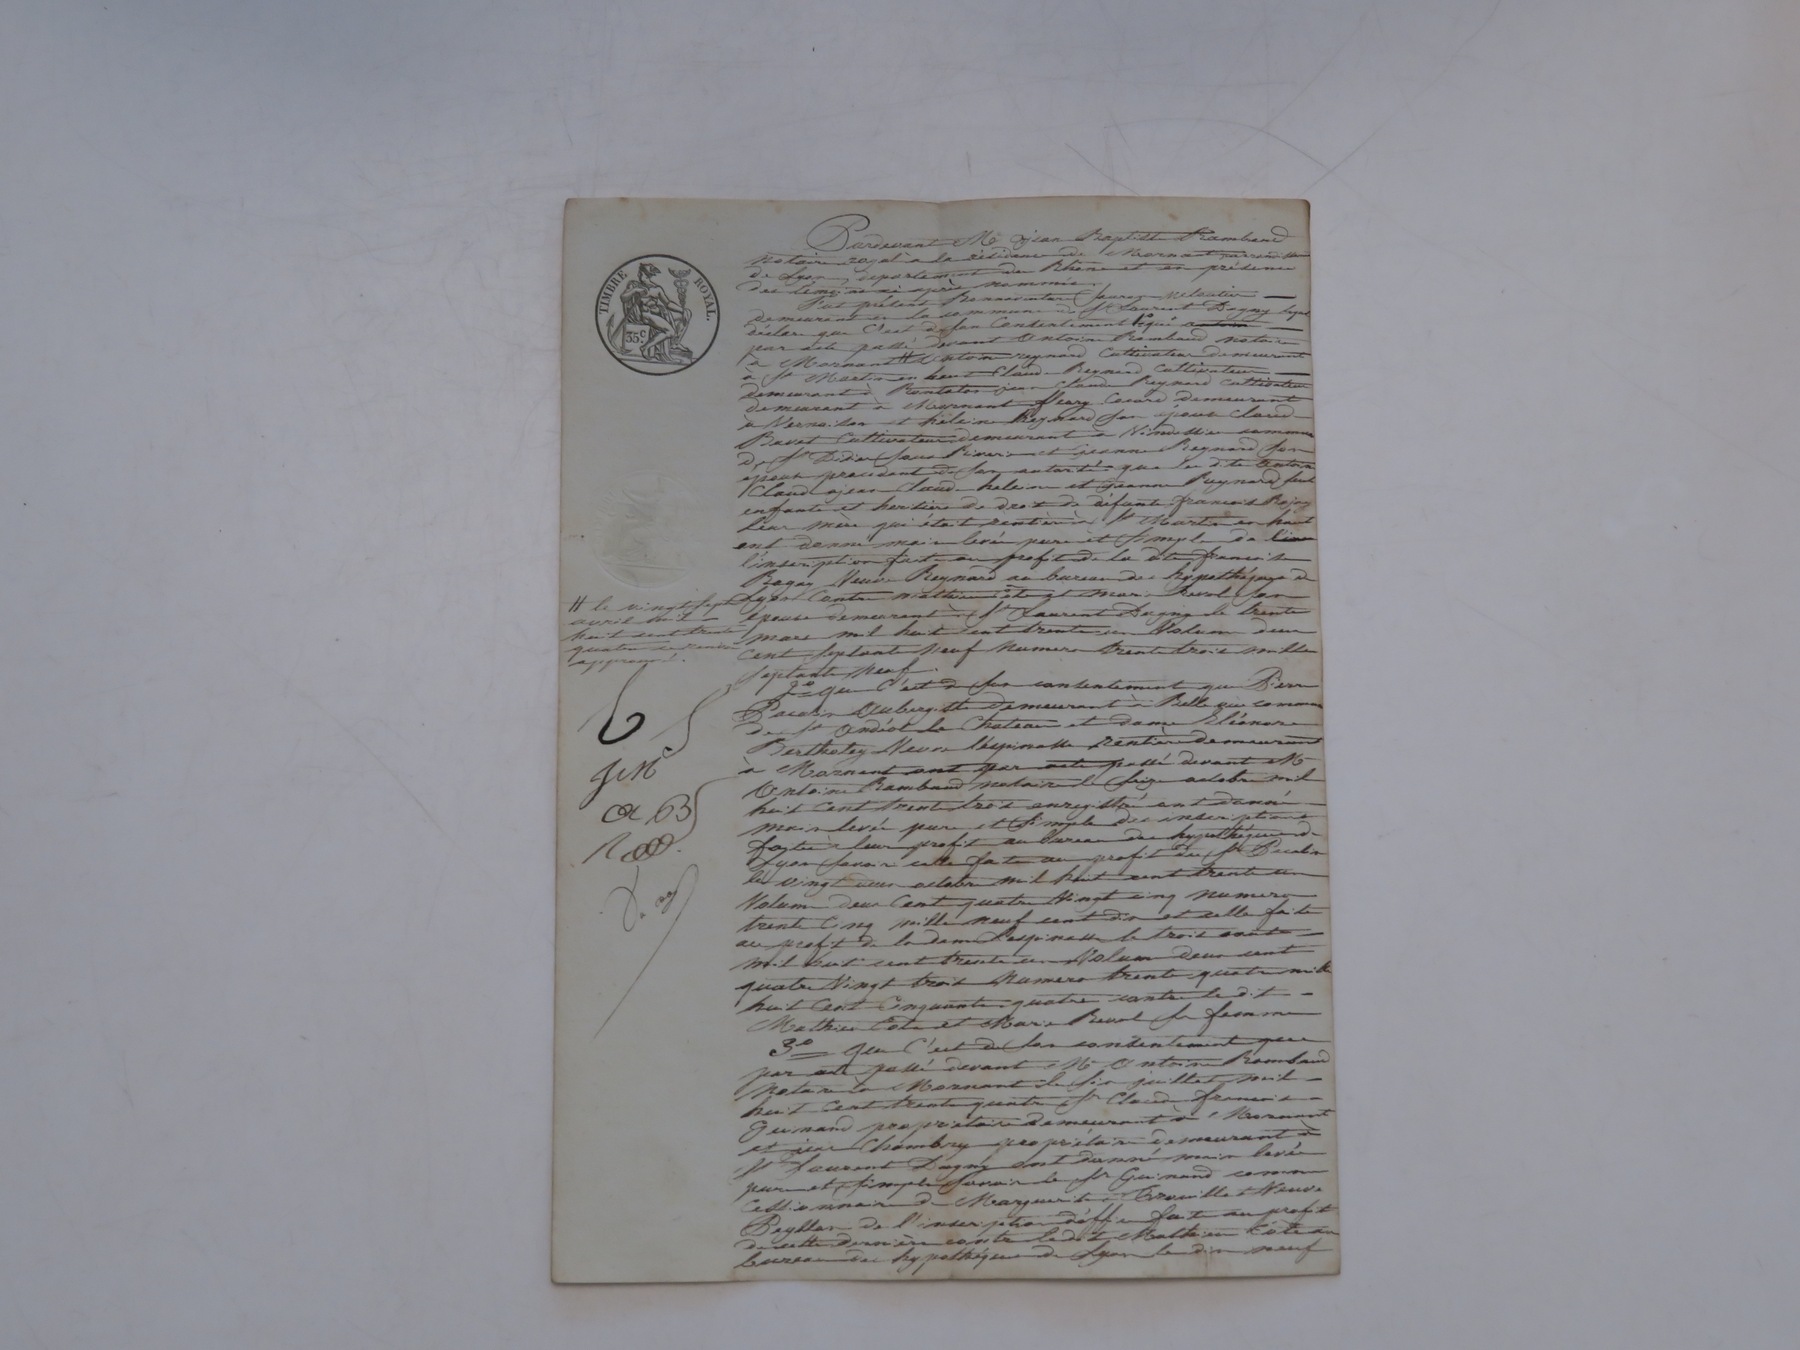 TIMBRE ROYAL.
35c
Pardevant Me jean Baptiste Rambaud
notaire royal à la résidence de Mornant
de Lyon, département du Rhône et en présence
des témoins ci après nommés.
Fut présent Bonnaventure
demeurant en la commune de St Laurent Dagny lequel
déclare que C'est de son Consentement 1o que
par acte passé devant Antoine Rambaud notaire
à Mornant # Antoine reynard Cultivateur demeurant
à St Martin en haut Claude Reynard Cultivateur
demeurant à Rontalon jean Claude Reynard Cultivateur
demeurant à Mornant fleury demeurant
à Vernaison et hélène Reynard son épouse Claude
Cultivateur demeurant à commune
de St Didier Sous Riverie et jeanne Reynard son
épouse procédant de son autorité que les dits Antoine
Claude jean Claude helene et jeanne Reynard seuls
enfants et heritiers de droit de défunte francoise
leur mère qui était rentière à St Martin en haut
ont donné main levée pure et simple de
l'inscription faite au profit de la dite francoise
Veuve Reynard au bureau des hypothéques de
Lyon Contre mathieu Côte et marie Revol son
épouse demeurant à St Laurent Dagny le trente
mars mil huit cent trente un Volume deux
Cent Septante Neuf Numero trente trois mille
Septante Neuf.
# le vingt sept
avril mil
huit cent trente
quatre le renvoi
approuvé.
2o que C'est de son consentement que Pierre
Aubergiste demeurant à Belle vue commune
de St Andéol le Chateau et dame Eléonore
Bertholey Veuve Lespinasse rentière demeurant
à Mornant ont par acte passé devant Me
Antoine Rambaud notaire le Seize octobre mil
huit Cent trente trois enregistré ont donné
main levée pure et Simple des inscriptions
faites à leur profit au bureau des hypothéques de
Lyon Savoir celle faite au profit du Sr
le vingt deux octobre mil huit cent trente un
Volume deux Cent quatre Vingt cinq numero
trente Cinq mille neuf cent dix et celle faite
au profit de la dame Lespinasse le trois
mil huit cent trente un Volume deux cent
quatre Vingt trois Numero trente quatre mille
huit Cent Cinquante quatre contre le dit
Mathieu Cote et Marie Revol sa femme
3o que C'est de son consentement que
par acte passé devant Me Antoine Rambaud
notaire à Mornant le Six juillet mil
huit Cent trente quatre Sr Claude francois
Guinand propriétaire demeurant à Mornant
et jean Chambry propriétaire demeurant à
St Laurent Dagny ont donné main levée
pure et Simple Savoir le Sr Guinand comme
Cessionnaire de Marguerite Veuve
de l'inscription d'office faite au profit
de cette dernière contre le dit Mathieu Côte au
bureau des hypothéques de Lyon le dix neuf